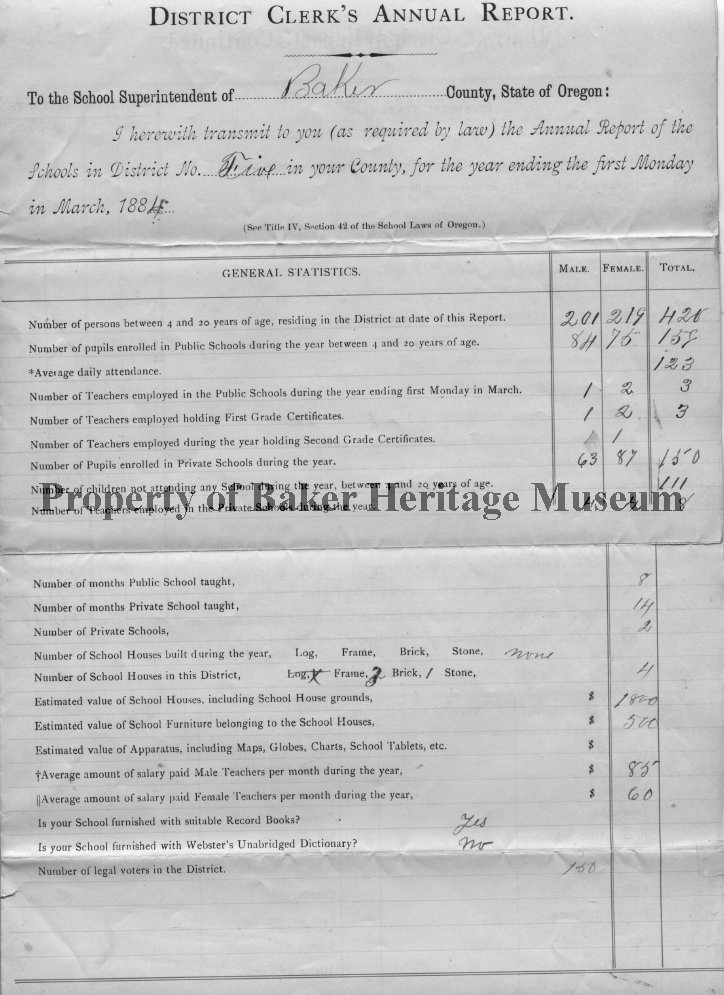 DISTRICT CLERK'S ANNUAL REPORT.
To the School Superintendent of Baker County, State of Oregon:
I herewith transmit to you (as required by law) the Annual Report of the
Schools in District No. Five in your County, for the year ending the first Monday
in March, 1884
(See Title IV, Section 42 of the School Laws of Oregon.)
GENERAL STATISTICS. MALE. FEMALE. TOTAL.
Number of persons between 4 and 20 years of age, residing in the District at date of this Report. 201 219 420
Number of pupils enrolled in Public Schools during the year between 4 and 20 years of age. 84 75 159
*Average daily attendance. 123
Number of Teachers employed in the Public Schools during the year ending first Monday in March. 1 2 3
Number of Teachers employed holding First Grade Certificates. 1 2 3
Number of Teachers employed during the year holding Second Grade Certificates. 1
Number of Pupils enrolled in Private Schools during the year. 63 87 150
Number of children not attending any School during the year, between 4 and 20 years of age. 111
Property of Baker Heritage Museum
Number of Teachers employed in the Private Schools during the year. 4 4 8
Number of months Public School taught, 8
Number of months Private School taught, 14
Number of Private Schools, 2
Number of School Houses built during the year, Log, Frame, Brick, Stone, none
Number of School Houses in this District, Log, X Frame, 3 Brick, 1 Stone, 4
Estimated value of School Houses, including School House grounds, $ 1800
Estimated value of School Furniture belonging to the School Houses, $ 500
Estimated value of Apparatus, including Maps, Globes, Charts, School Tablets, etc. $
†Average amount of salary paid Male Teachers per month during the year, $ 85
‖Average amount of salary paid Female Teachers per month during the year, $ 60
Is your School furnished with suitable Record Books? Yes
Is your School furnished with Webster's Unabridged Dictionary? No
Number of legal voters in the District. 150